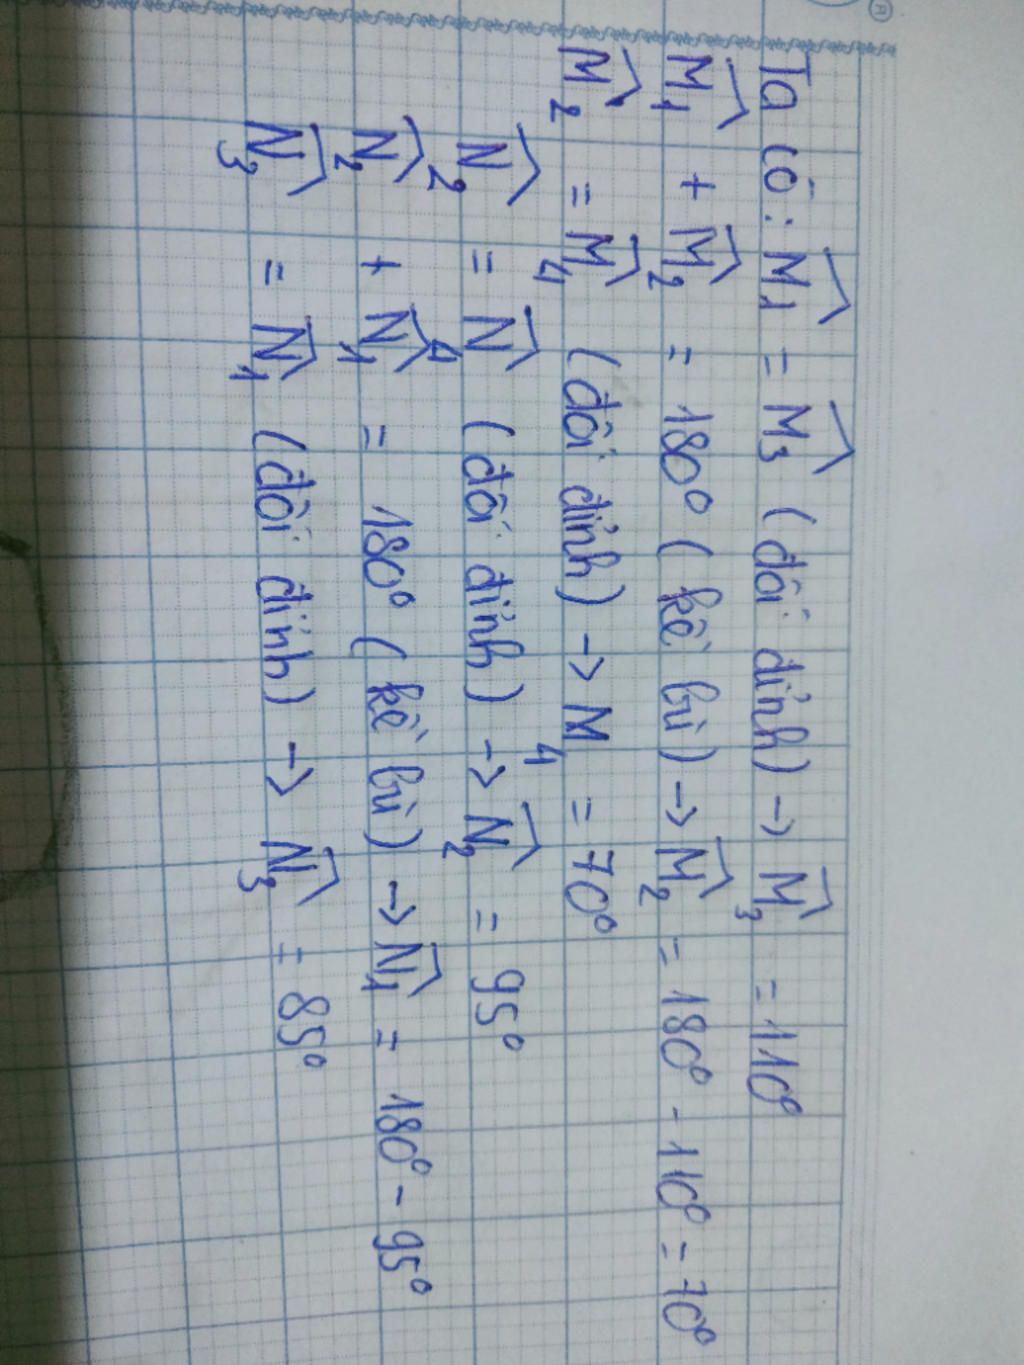 Ta có: M₁ = M₃ (đối đỉnh) → M₃ = 110°
M₁ + M₂ = 180° (kề bù) → M₂ = 180° - 110° = 70°
M₂ = M₄ (đối đỉnh) → M₄ = 70°
N₂ = N₄ (đối đỉnh) → N₂ = 95°
N₂ + N₁ = 180° (kề bù) → N₁ = 180° - 95°
N₃ = N₁ (đối đỉnh) → N₃ = 85°